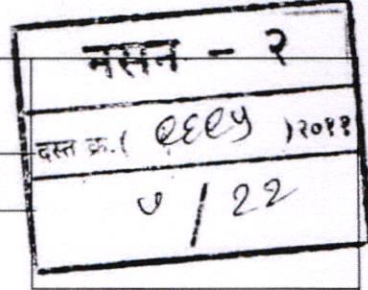 नसन - २
दस्त क्र. ( ९६९५ ) २०११
७ / २२